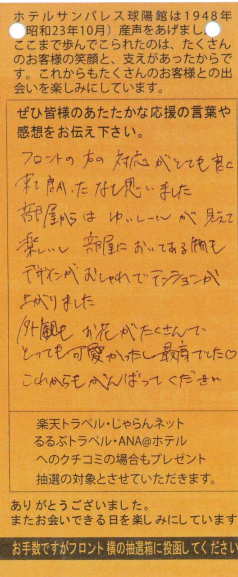 ホテルサンパレス球陽館は1948年
(昭和23年10月) 産声をあげまし
ここまで歩んでこられたのは、たくさん
のお客様の笑顔と、支えがあったからで
す。これからもたくさんのお客様との出
会いを楽しみにしています。
ぜひ皆様のあたたかな応援の言葉や
感想をお伝え下さい。
フロントの方の対応がとても
来て良かったなと思いました
部屋からは ゆいレールが見えて
楽しいし 部屋においてある物も
デザインがおしゃれでテンションが
上がりました
外観も お花がたくさんで
とっても可愛かったし最高でした♡
これからもがんばってください
楽天トラベル・じゃらんネット
るるぶトラベル・ANA@ホテル
へのクチコミの場合もプレゼント
抽選の対象とさせていただきます。
ありがとうございました。
またお会いできる日を楽しみにしています
お手数ですがフロント横の抽選箱に投函してください